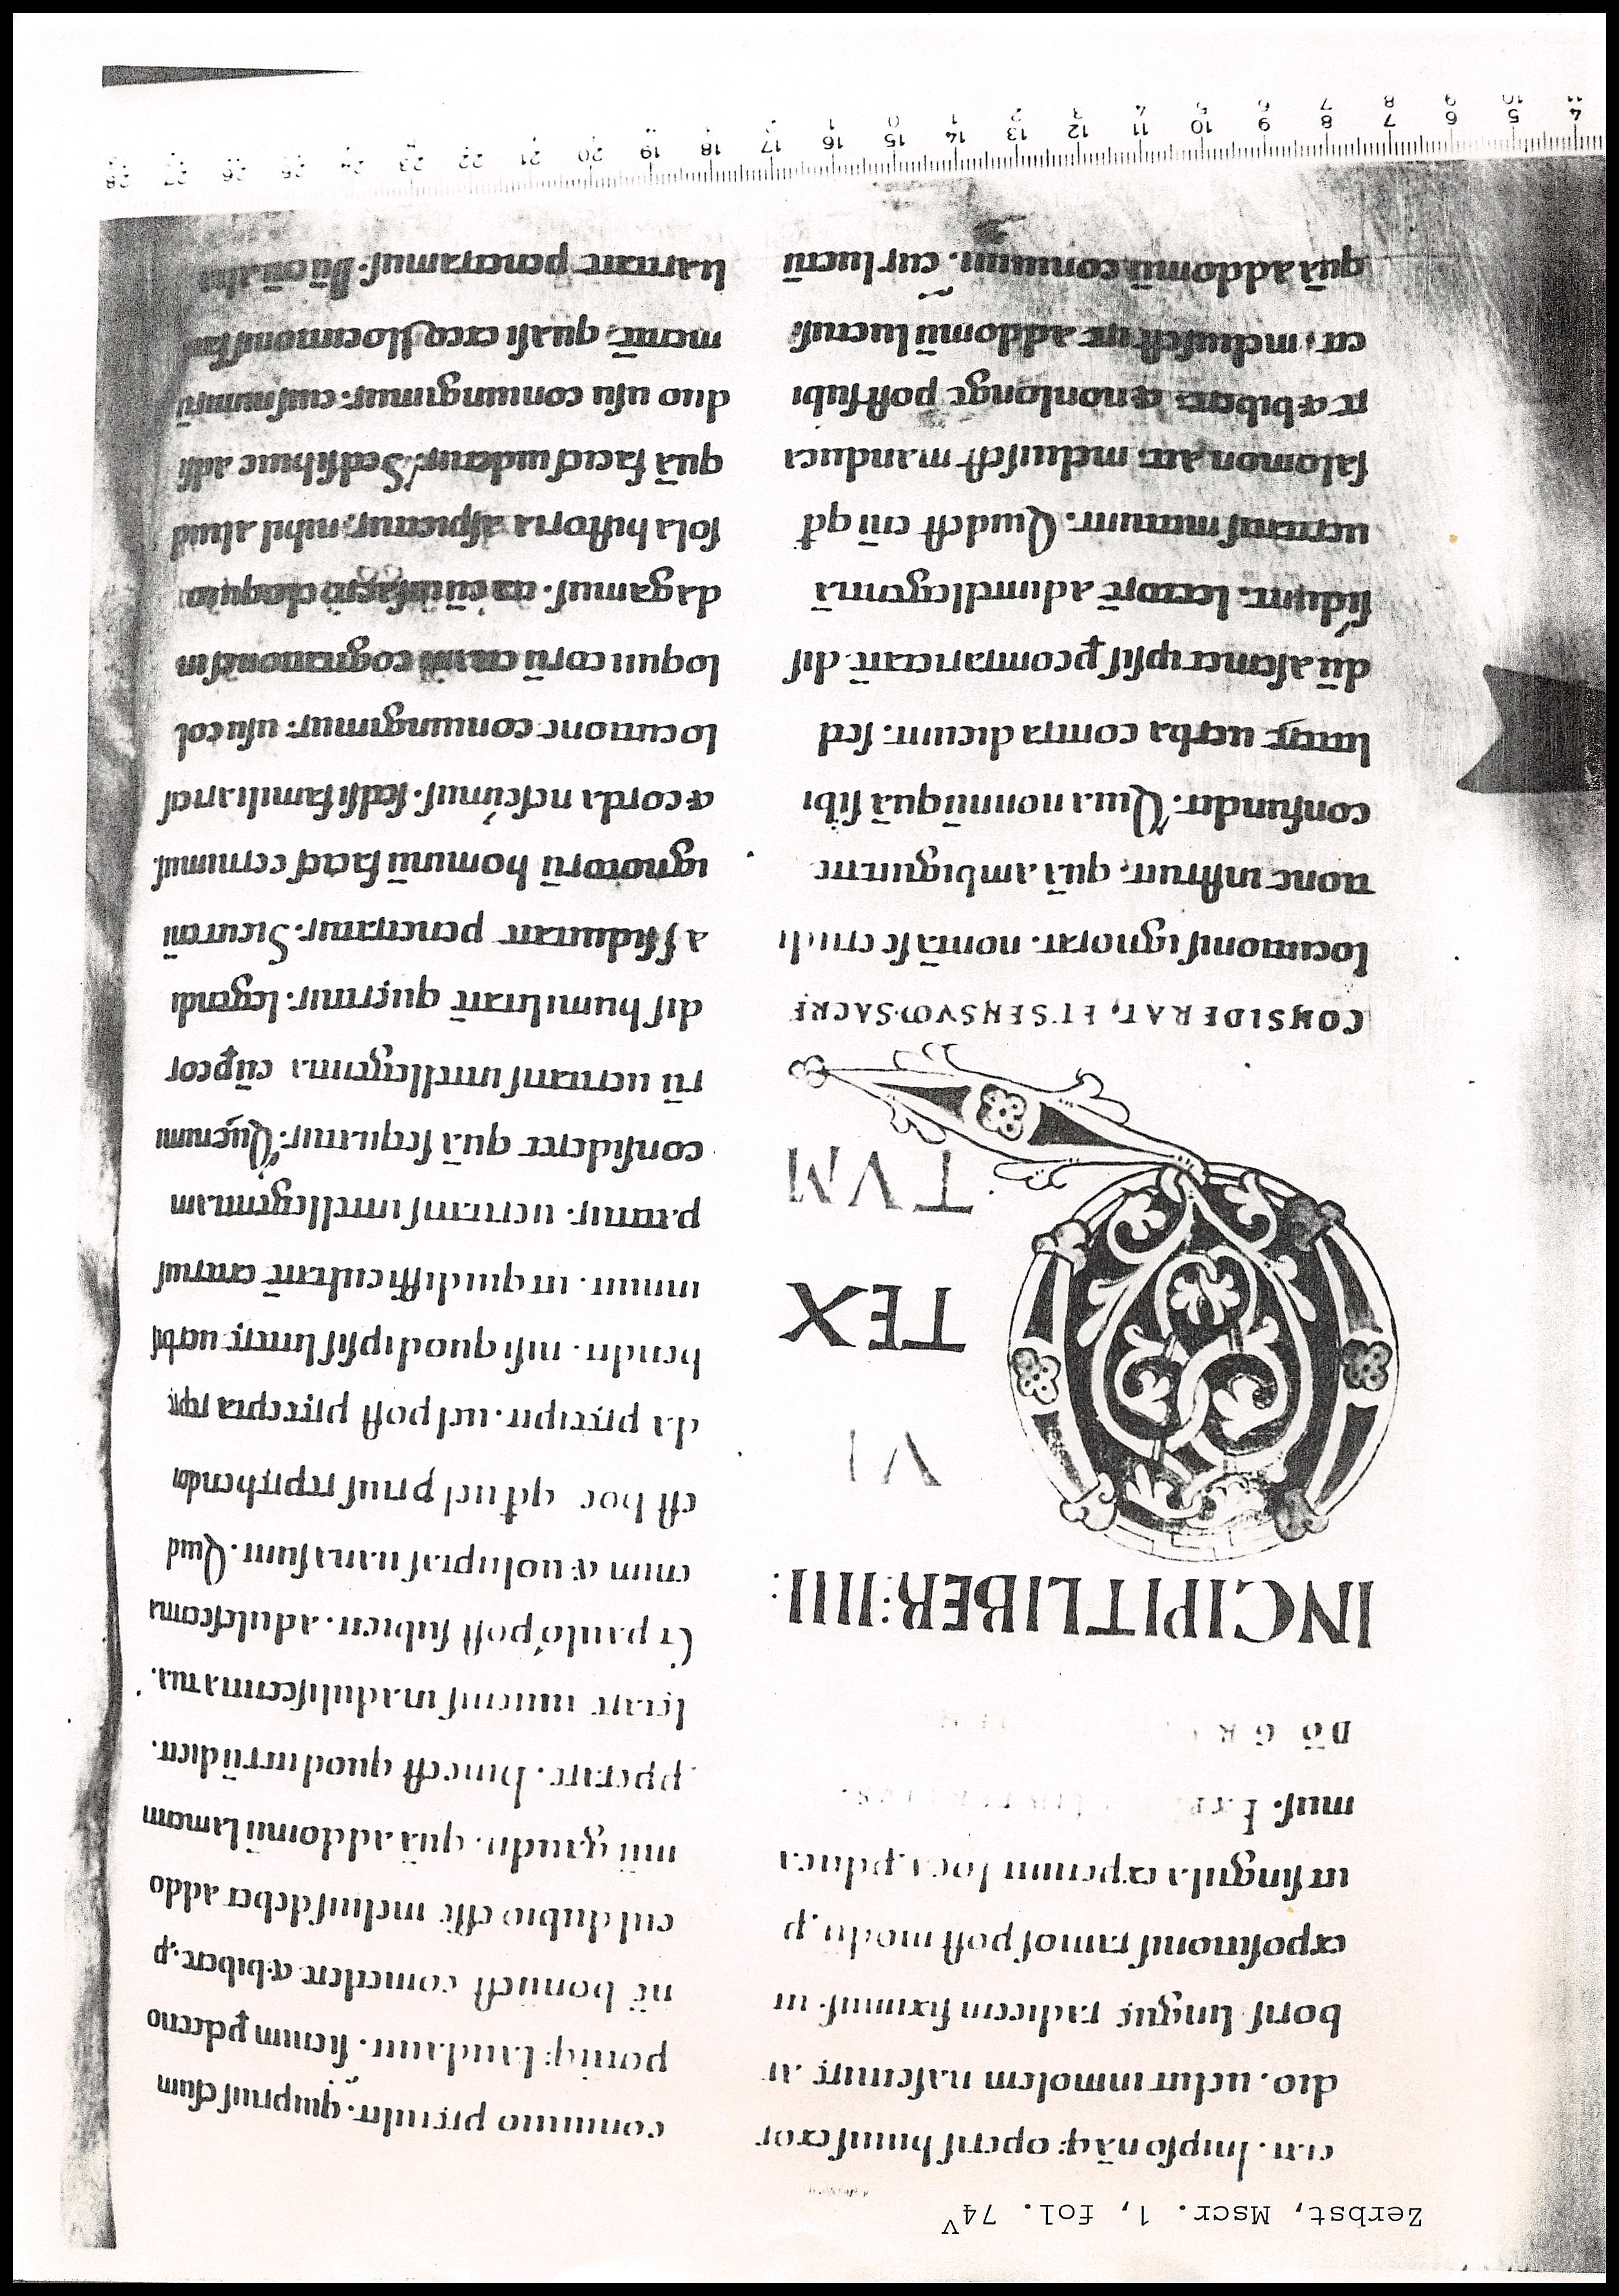 Zerbst, Mscr. 1, fol. 74v
&a. In ipso nāq; operis huius exor
dio. uelut in molem nascentis ar
boris lingue radicem fiximus. ut
expositionis ramos post modū p
ut singula expetunt loca. p duca
mus.
DŌ GR
INCIPIT LIBER: IIII:
QVI
TEX
TVM
CONSIDERAT. ET SENSVM SACRE
locutionis ignorat. non tā se erudi
tione instruit. quā ambiguitate
confundit. Quia nonnūquā sibi
littere uerba contra dicunt. sed
dū a semetipsis p contrarietatē dis
sidunt. lectorē ad intellegentiā
ueritatis mittunt. Quid est eni qd
salomon ait. melius est manduca
re & bibere. & non longe post subi
cit. melius est ire ad domū luctus.
quā ad domū conuiuii. cur luctū
conuiuio pretulit. qui prius esum
potūq; laudauit. si enim p electio
nē bonū est comedere & bibere. p
cul dubio esse melius debet ad do
mū gaudii. quā ad domū lamenti
pperare. hinc est quod iterū dicit.
letare iuuenis in adulescentia tua.
Et paulo post subicit. adulescentia
enim & uoluptas uana sunt. Quid
est hoc qd uel prius reprehenden
da precipit. uel post precepta repre
hendit. nisi quod ipsis littere uerbis
innuit. ut qui difficultatē exterius
patitur. ueritatis intellegentiam
consideret quā sequatur. Que nimi
rū ueritatis intellegentia cū p cor
dis humilitatē queritur. legendi
assiduitate penetratur. Sicut eni
ignotorū hominū facies cernimus.
& corda nescimus. sed si familiari eis
locutione coniungimur. usu col
loquii eorū etiam cogitationes in
dagamus. ita cū in sacro eloquio
sola historia aspicitur. nihil aliud
quā facies uidetur. Sed si huic assi
duo usu coniungimur. eius nimirū
mentē. quasi ex collocutionis fami
liaritate penetramus. Dū eni alia